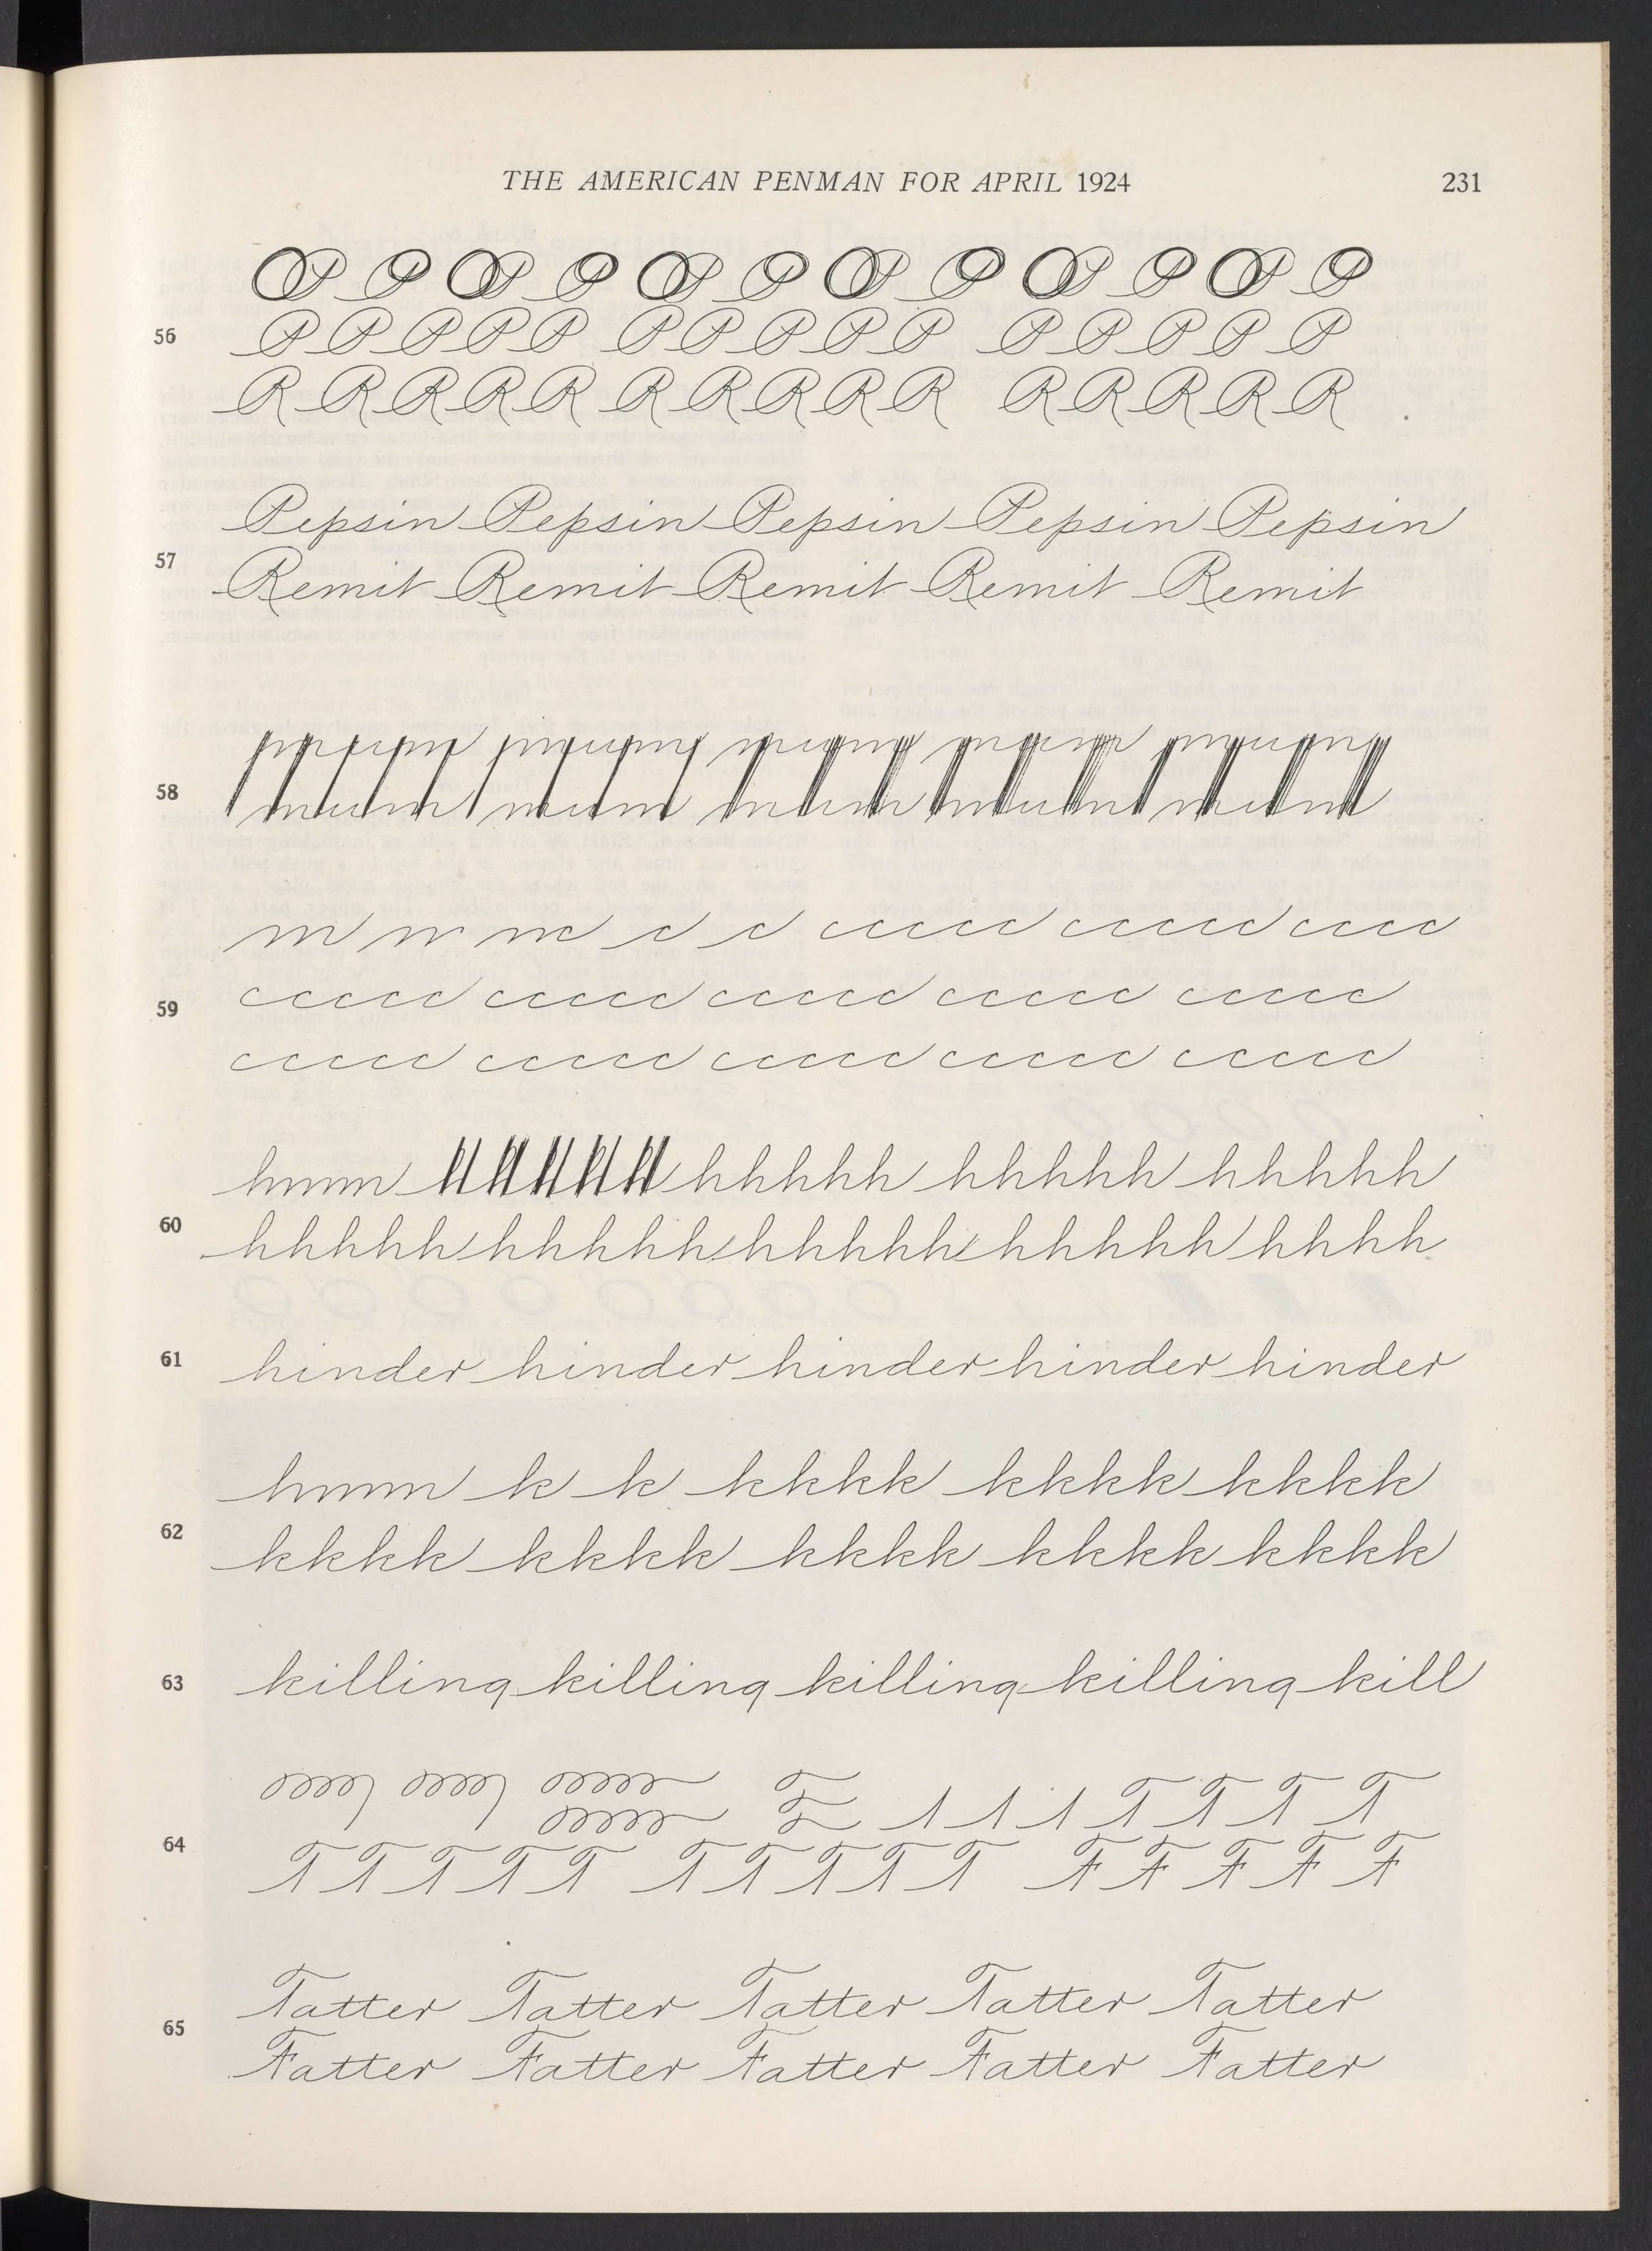 THE AMERICAN PENMAN FOR APRIL 1924 231
P P P P P P P P P P P P
56 P P P P P P P P P P P P P P P
R R R R R R R R R R R R R R R
Pepsin Pepsin Pepsin Pepsin Pepsin
57
Remit Remit Remit Remit Remit
58
c c ccccc ccccc cccc
59 ccccc ccccc ccccc ccccc ccccc
ccccc ccccc ccccc ccccc ccccc
hhhhh hhhhh hhhhh
60
hhhhh hhhhh hhhhh hhhhh hhhh
61 hinder hinder hinder hinder hinder
k k kkkk kkkk kkkk
62
kkkk kkkk kkkk kkkk kkkk
63 killing killing killing killing kill
T T T T
64
T T T T T T T T T T F F F F F
Tatter Tatter Tatter Tatter Tatter
65
Fatter Fatter Fatter Fatter Fatter